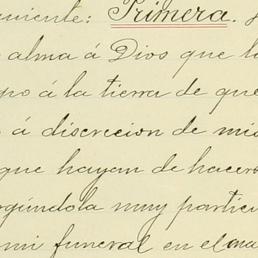 niente: Primera.
alma á Dios que l
po á la tierra de que
á discrecion de mis
que hayan de hacers
ogándola muy partic
mi funeral en el ma